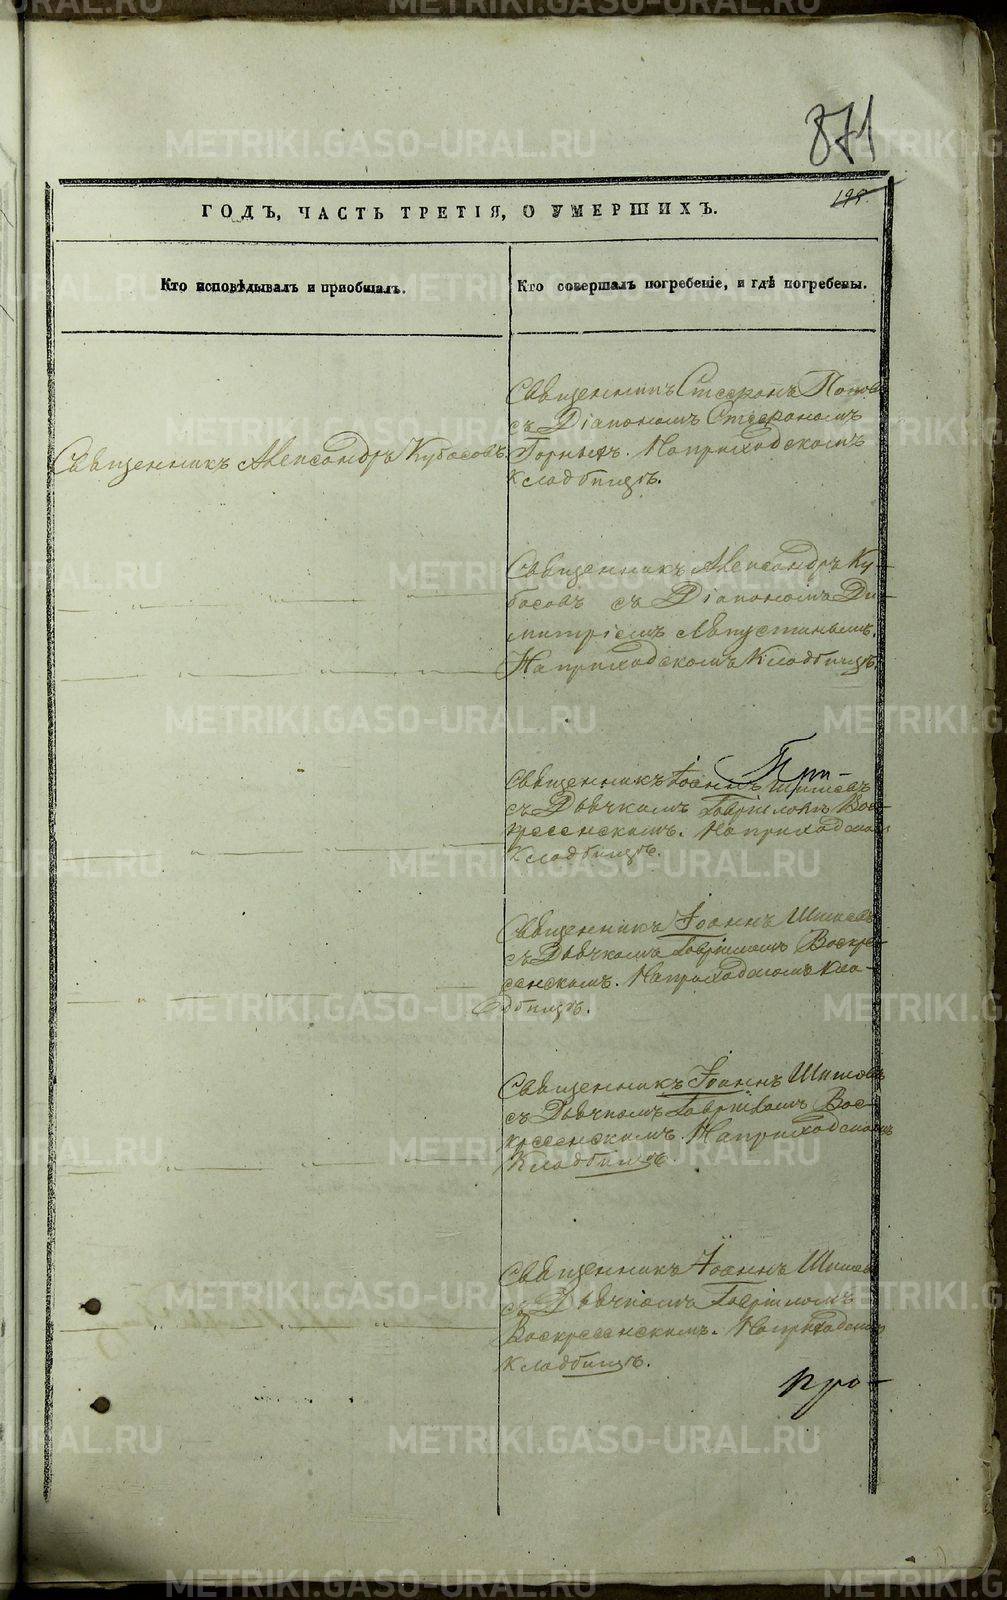 871
199.
ГОДЪ, ЧАСТЬ ТРЕТІЯ, О УМЕРШИХЪ.
Кто исповѣдывалъ и приобщалъ.
Кто совершалъ погребеніе, и гдѣ погребены.
Священникъ Александръ Кубасовъ.
Священникъ Стефанъ Поповъ
съ Діакономъ Стефаномъ
Горныхъ. На приходскомъ
кладбищѣ.
Священникъ Александръ Ку-
басовъ съ Діакономъ Ди-
митріемъ Августинымъ.
На приходскомъ кладбищѣ.
При-
Священникъ Іоаннъ Шишевъ
съ Дьячкомъ Гавріиломъ Вос-
кресенскимъ. На приходском
кладбищѣ.
Священникъ Іоаннъ Шишевъ
съ Дьячкомъ Гавріиломъ Воскре-
сенскимъ. На приходскомъ кла-
дбищѣ.
Священникъ Іоаннъ Шишевъ
съ Дьячкомъ Гавріиломъ Вос-
кресенскимъ. На приходскомъ
кладбищѣ.
Священникъ Іоаннъ Шишев
съ Дьячкомъ Гавріиломъ
Воскресенскимъ. На приходском
кладбищѣ.
про-
METRIKI.GASO-URAL.RU